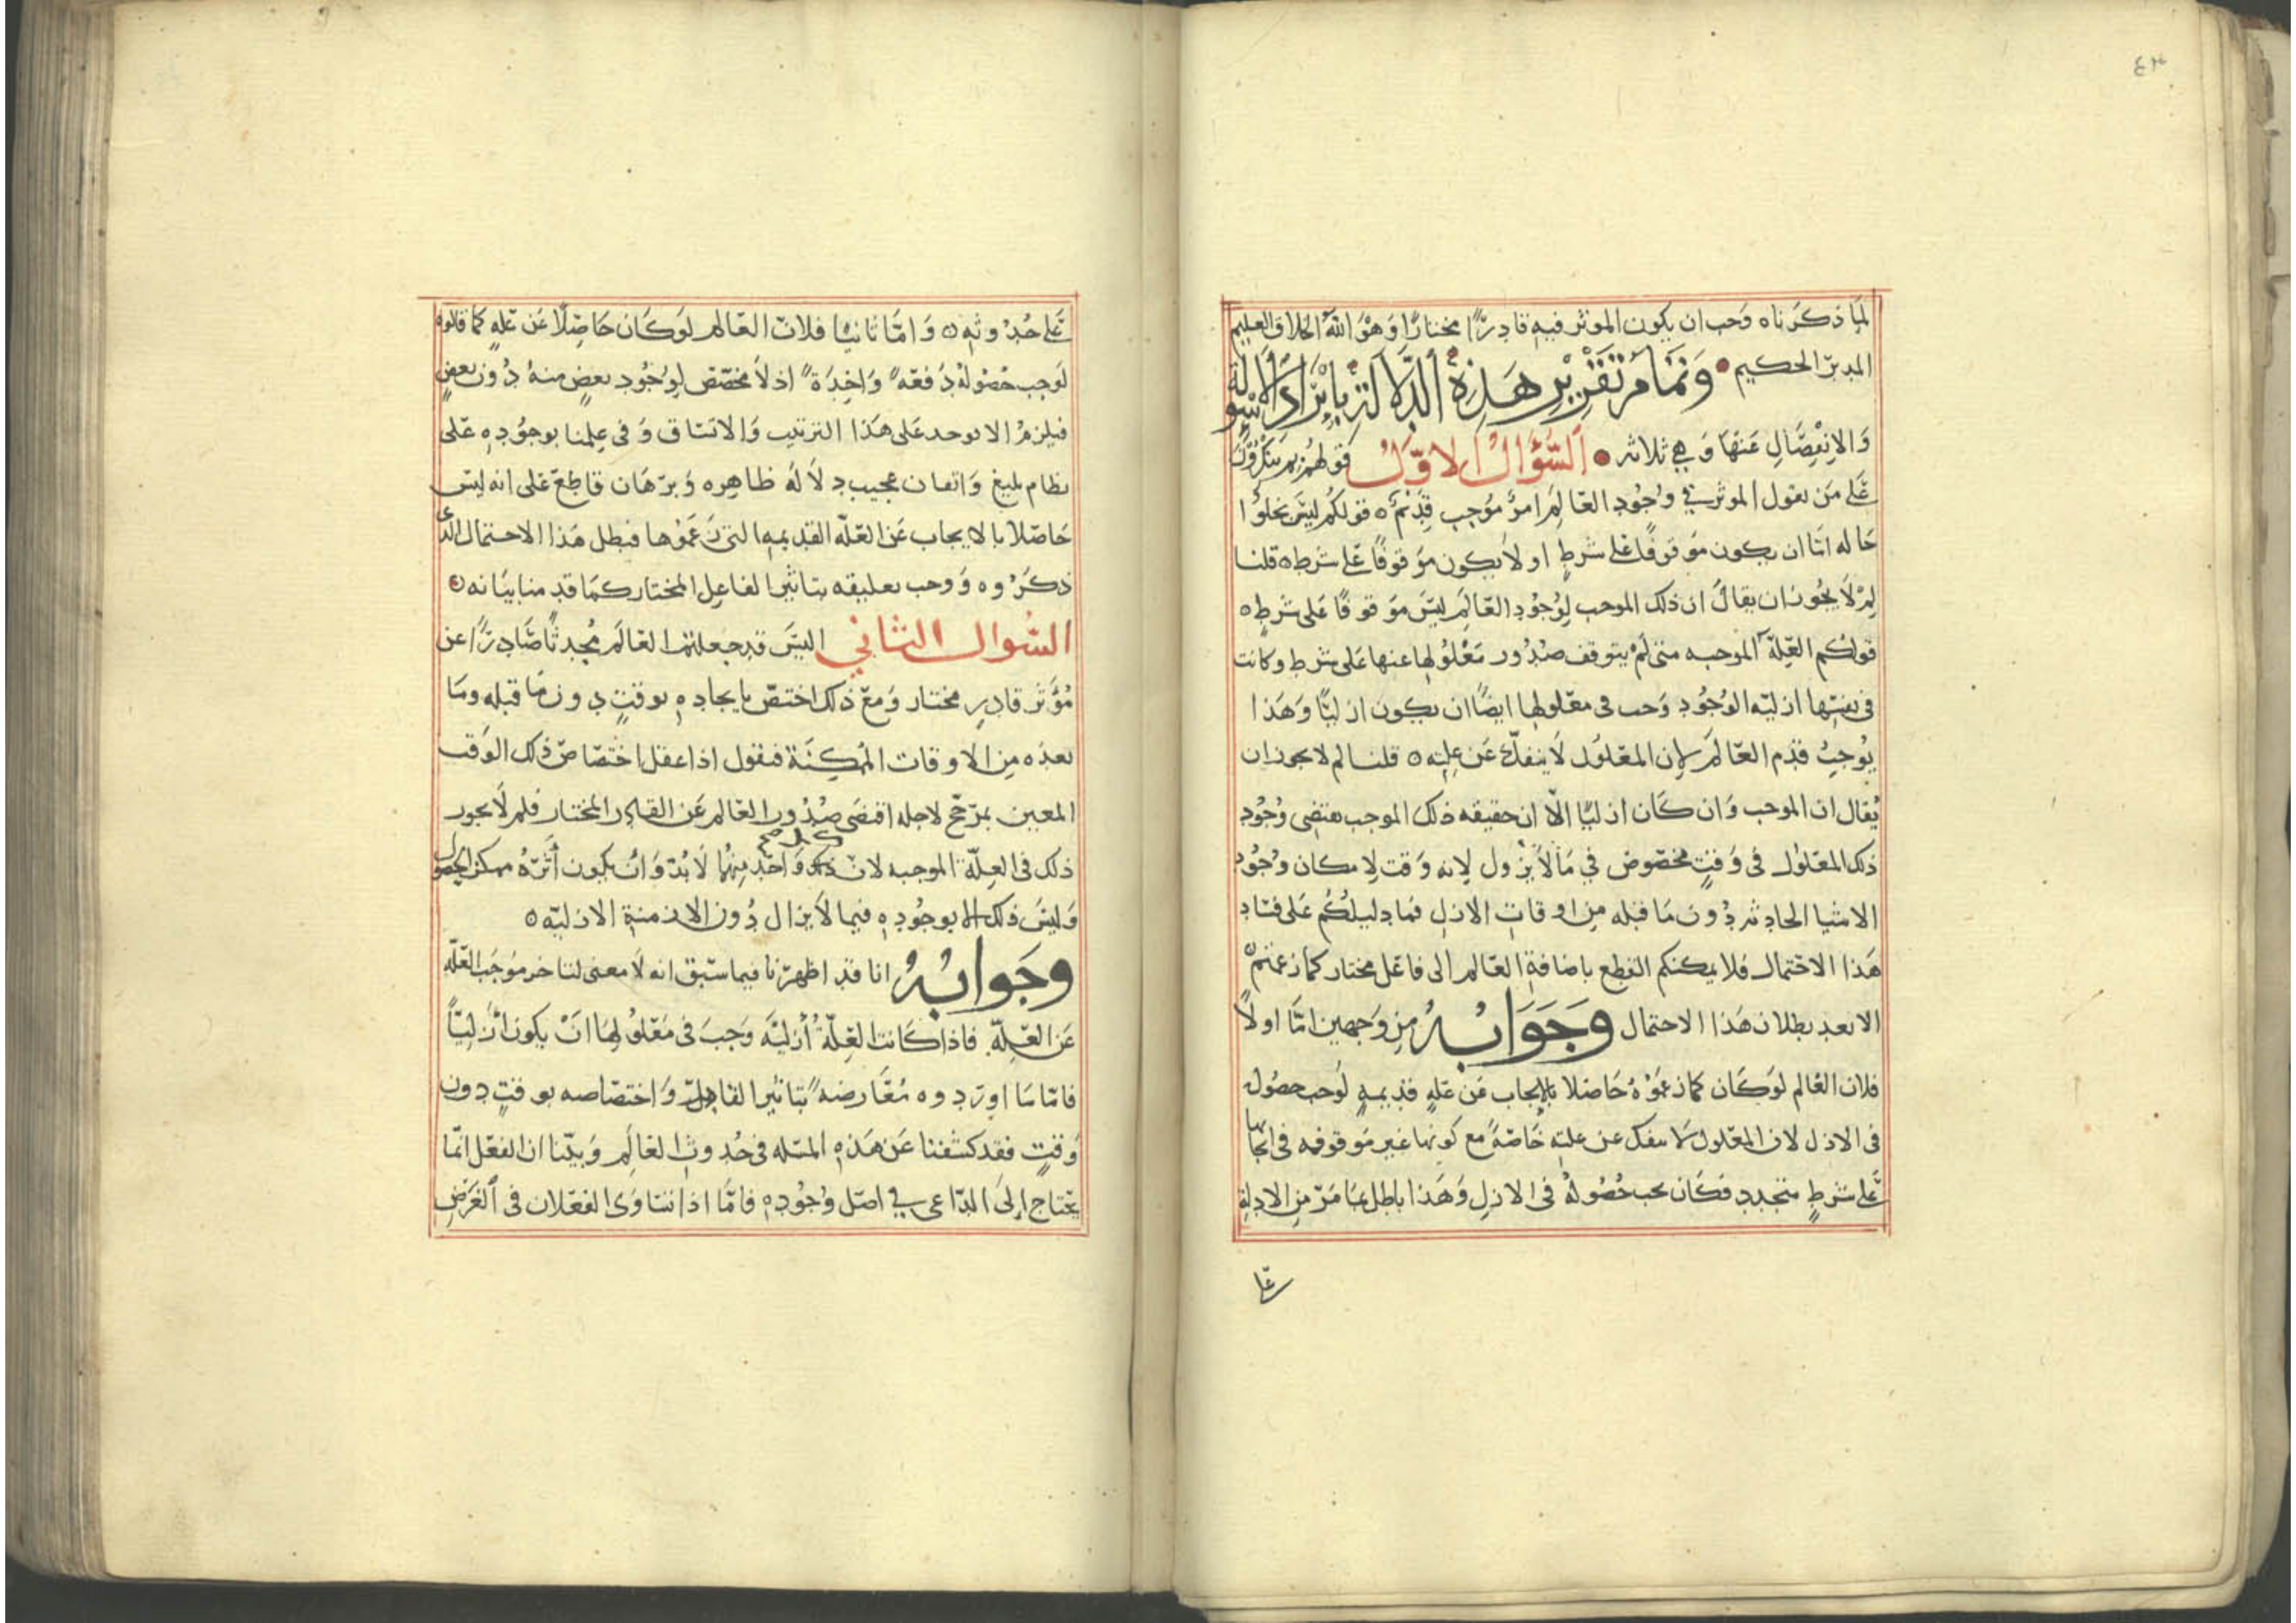 ٤٣
لما ذكرناه وجب ان يكون الموثر فيه قادرًا مختارًا وهو الله الخلاق العليم
المدبر الحكيم وتمام تقرير هذه الدلالة بايراد الاسولة
والانفصال عنها وهي ثلاثه السؤال الاول قولهم بم تنكرون
على من يقول الموثر في وجود العالم امر موجب قديم ه قولكم ليس يخلوا
حاله اما ان يكون موقوفًا على شرطٍ او لا يكون موقوفًا على شرط ه قلنا
لم لا يجوز ان يقال ان ذلك الموجب لوجود العالم ليس موقوفًا على شرطٍ ه
قولكم العلة الموجبه متى لم يتوقف صدور معلولها عنها على شرط وكانت
في نفسها ازليه الوجود وجب في معلولها ايضًا ان يكون ازليًا وهذا
يوجب قدم العالم لان المعلول لا ينفك عن علته ه قلنا لم لا يجوز ان
يقال ان الموجب وان كان ازليًا الّا ان حقيقه ذلك الموجب يقتضي وجود
ذلك المعلول في وقتٍ مخصوص في ما لا يزول لانه وقت لامكان وجود
الاشيا الحادثه دون ما قبله من اوقات الازل فما دليلكم على فساد
هذا الاحتمال فلا يمكنكم القطع باضافة العالم الى فاعل مختار كما زعمتم
الا بعد بطلان هذا الاحتمال وجوابه من وجهين امّا اولًا
فلان العالم لو كان كما زعموه حاصلا بالايجاب عن علهٍ قديمهٍ لوجب حصوله
في الازل لان المعلول لا ينفك عن علته خاصّهً مع كونها غير موقوفه في ايجابها
على شرطٍ متجدد فكان يجب حصوله في الازل وهذا باطل بما مرّ من الادلة
على
على حدوثه ه واما ثانيًا فلان العالم لو كان حاصلًا عن علهٍ كما قالوه
لوجب حصوله دفعه واحدةً اذ لا مخصّص لوجود بعضٍ منه دون بعض
فيلزم الا يوجد على هذا الترتيب والاتساق وفي علمنا بوجوده على
نظام بليغ واتقان عجيب دلاله ظاهره وبرهان قاطع على انه ليس
حاصلا بالايجاب عن العلّه القديمه التي زعموها فبطل هذا الاحتمال الذي
ذكروه ووجب تعليقه بتاثير الفاعل المختار كما قدمنا بيانه ه
السوال الثاني اليس قد جعلتم العالم محدثًا صادرًا عن
مؤثر قادرٍ مختار ومع ذلك اختصّ بايجاده بوقتٍ دون ما قبله وما
بعده من الاوقات الممكنة فنقول اذا عقل اختصاص ذلك الوقت
المعين بمرجّح لاجله اقتضى صدور العالم عن القادر المختار فلم لا يجوز
ذلك في العلّة الموجبه لان كل واحد منهما لا بدّ وان يكون أثره ممكن الحصول
وليس ذلك الا بوجوده فيما لا يزال دون الازمنة الازليّه ه
وجوابه انا قد اظهرنا فيما سبق انه لا معنى لتاخر موجَب العلّه
عن العلّة. فاذا كانت العلّة أزليّه وجب في معلولها ان يكون أزليًّا
فامّا ما اوردوه معارضهً بتاثير الفاعل واختصاصه بوقتٍ دون
وقتٍ فقد كشفنا عن هذه المسله في حدوث العالم وبيّنا ان الفعل انّما
يحتاج إلى الدّاعي في اصل وجوده فامّا اذا تساوى الفعلان في الغرض